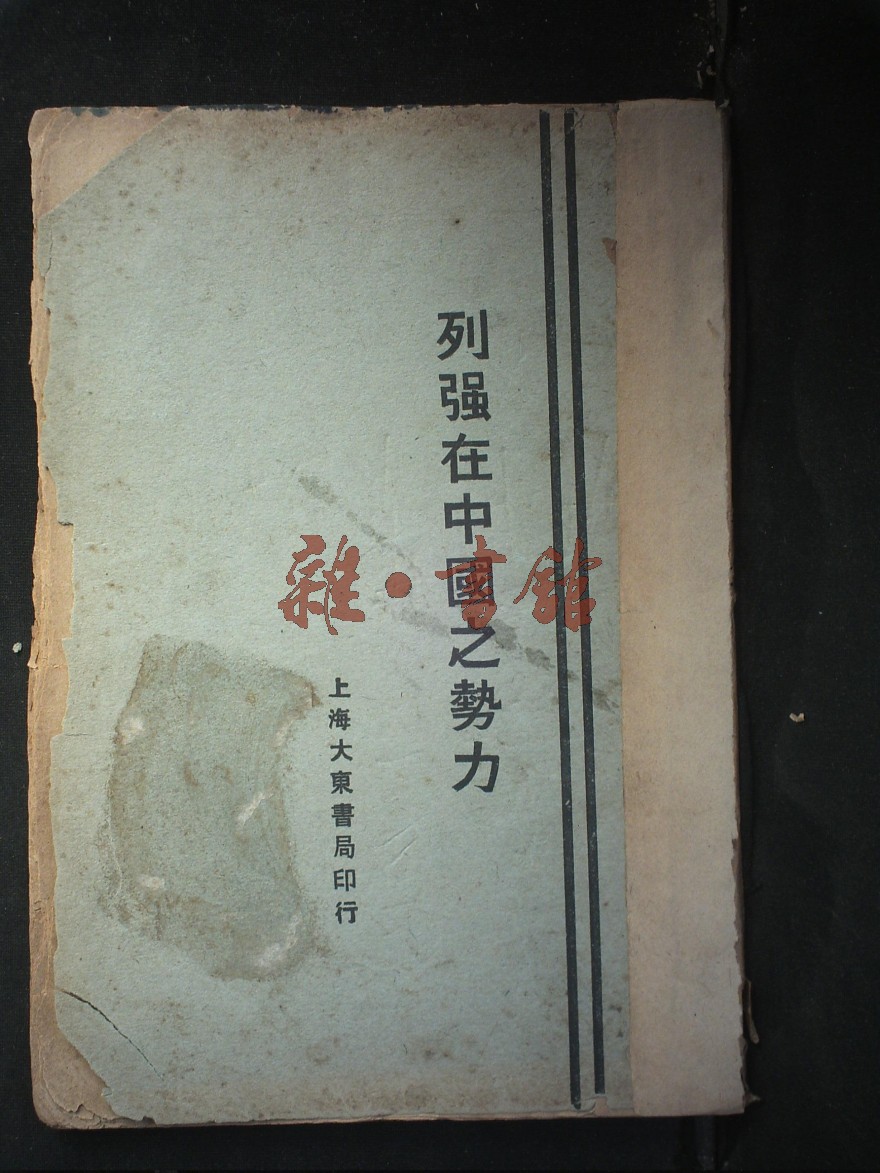 列强在中國之勢力
上海大東書局印行
雜·書館